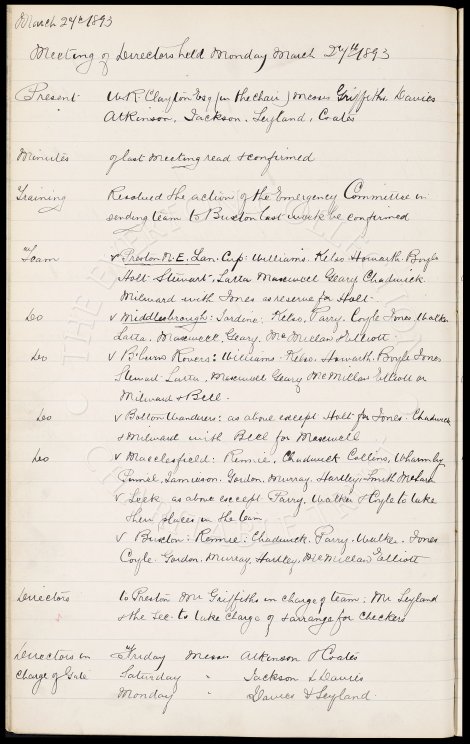 March 27th 1893
Meeting of Directors held Monday March 27th 1893
Present W.R Clayton Esq (in the chair) Messrs Griffiths Davies
Atkinson, Jackson, Leyland, Coates
Minutes of last meeting read & confirmed
Training Resolved the action of the Emergency Committee in
sending team to Buxton last week be confirmed
Team v Preston N.E. Lan. Cup: Williams. Kelso Howarth. Boyle
Holt. Stewart, Latta Maxwell Geary Chadwick
Milward with Jones as reserve for Holt.
Do v Middlesbrough: Jardine. Kelso, Parry. Coyle Jones, Walker
Latta, Maxwell, Geary, McMillan Elliott
Do v B'burn Rovers: Williams. Kelso. Howarth. Boyle Jones
Stewart. Latta, Maxwell Geary McMillan Elliott or
Milward & Bell.
Do v Bolton Wanderers: as above except Holt for Jones. Chadwick
& Milward with Bell for Maxwell
Do v Macclesfield: Rennie, Chadwick Collins, Wharmby
Jamieson. Gordon, Murray, Hartley, Smith
v Leek as above except Parry, Walker & Coyle to take
their places in the team
v Buxton: Rennie: Chadwick, Parry. Walker. Jones
Coyle. Gordon. Murray, Hartley, McMillan Elliott
Directors to Preston Mr Griffiths in charge of team: Mr Leyland
& the Sec. to take charge of & arrange for Checkers
Directors in Friday Messrs Atkinson & Coates
Charge of Gate Saturday " Jackson & Davies
Monday " Davies & Leyland.